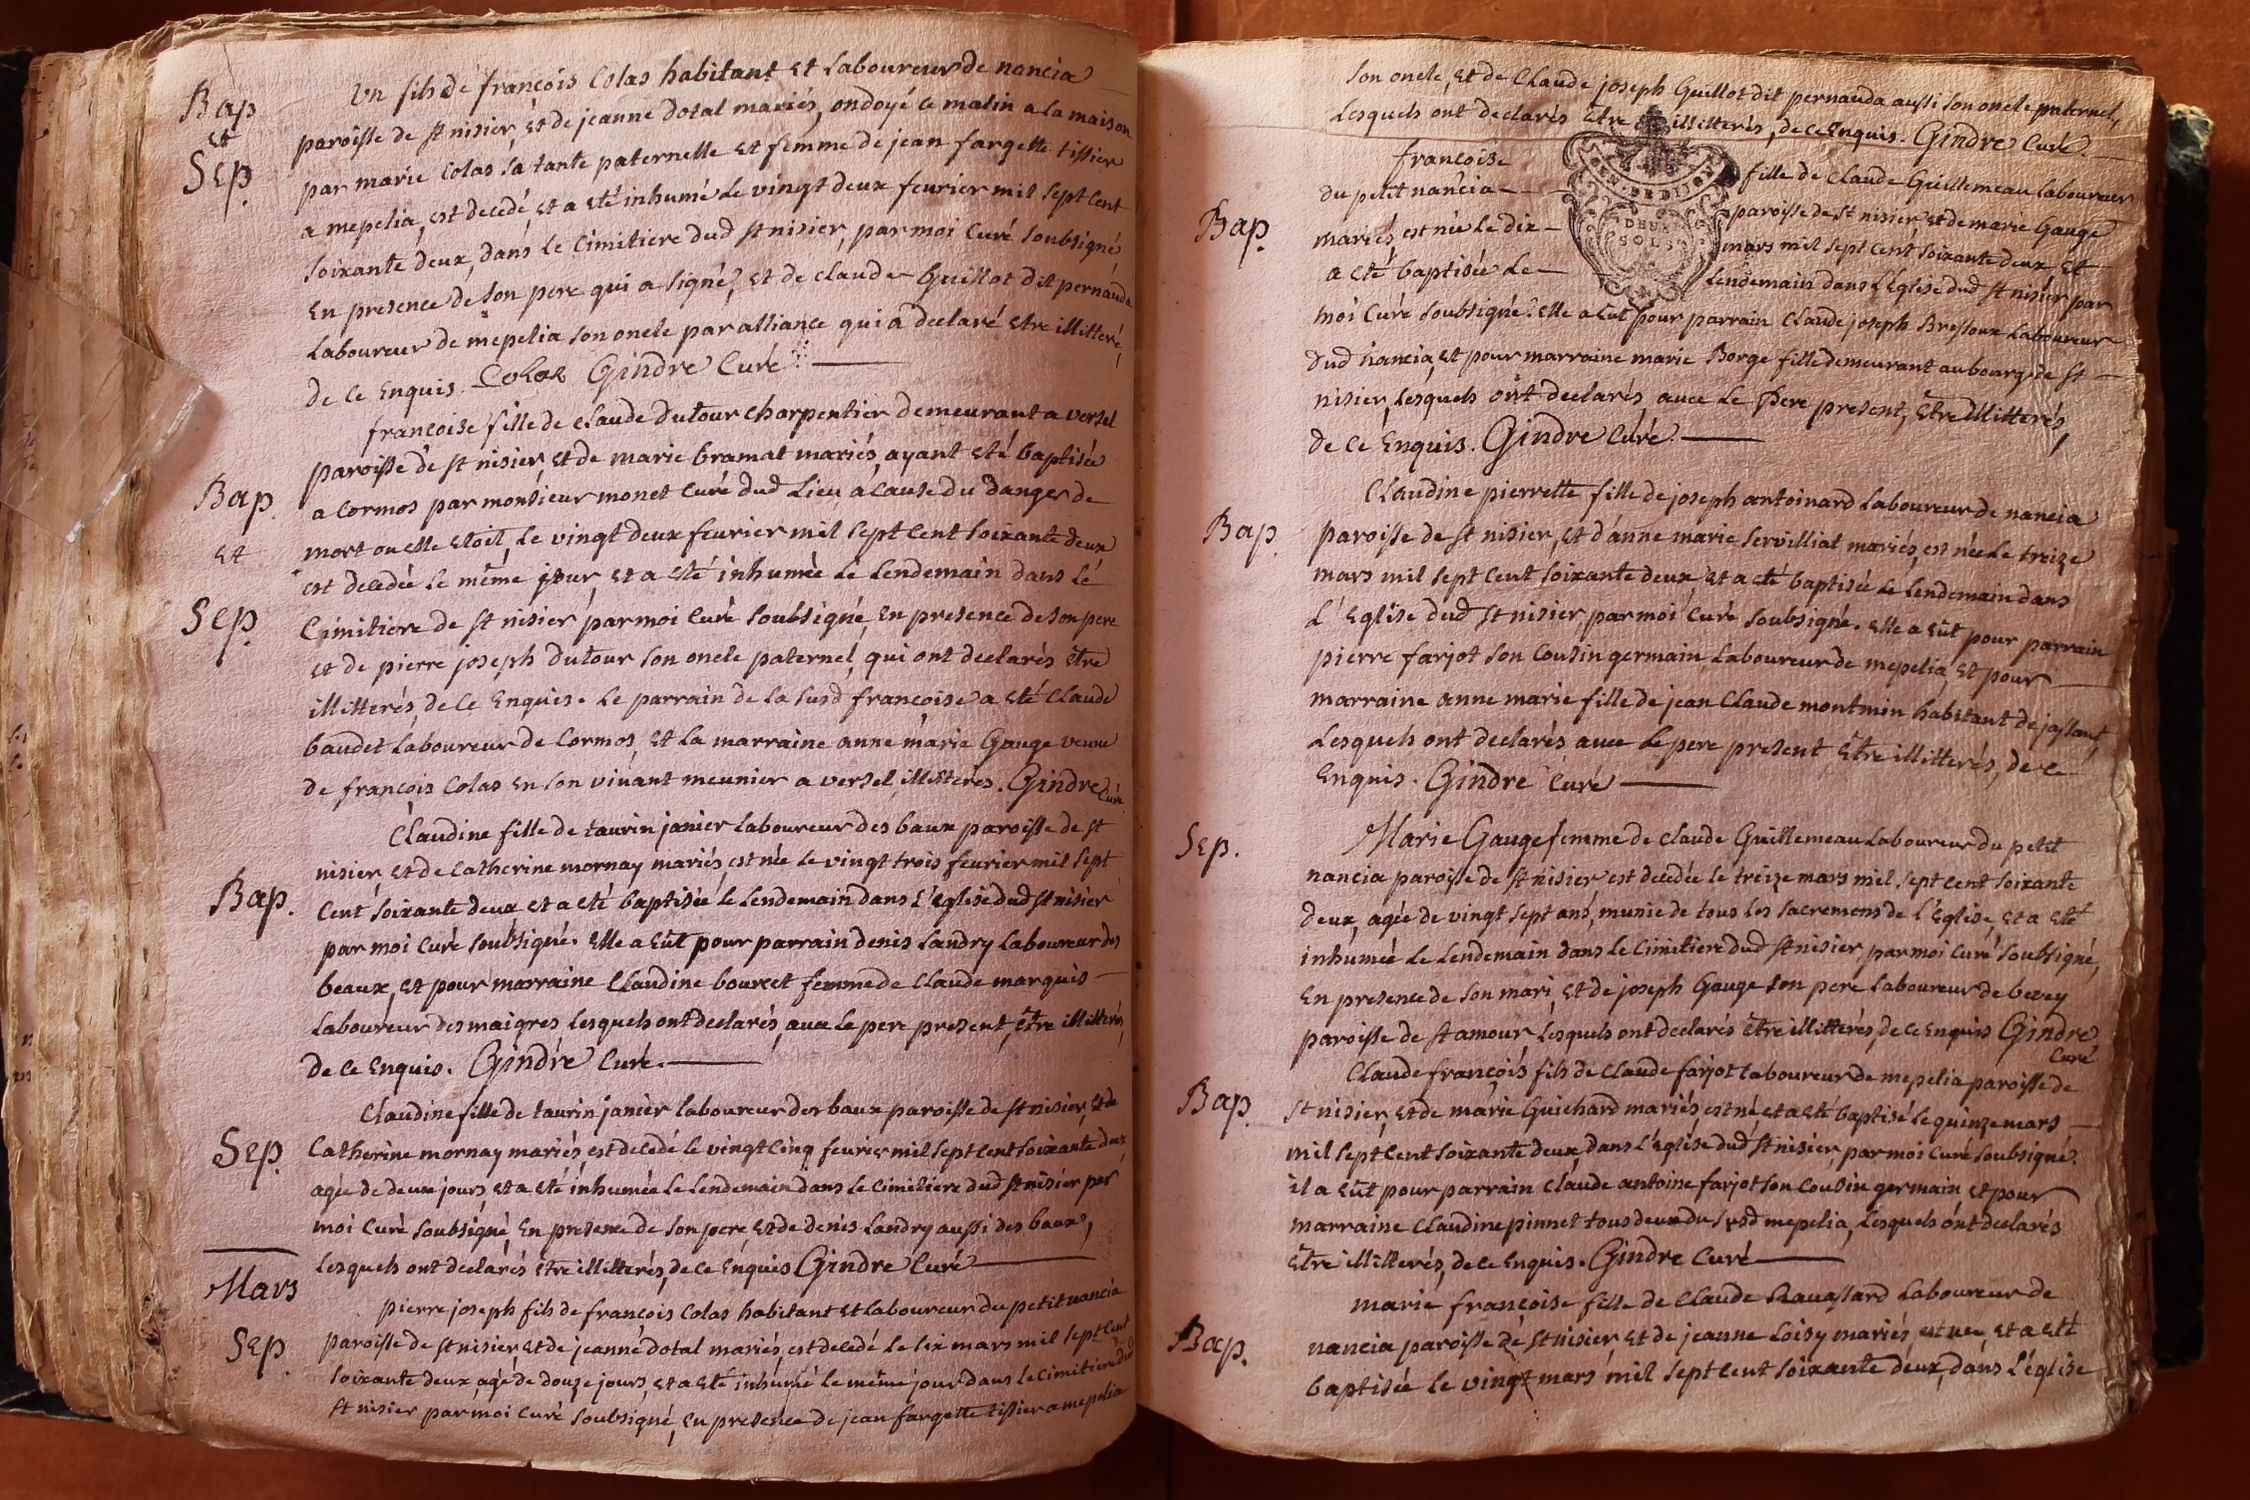 Bap
et
Sep.
Un fils de françois Colas habitant et Laboureur de nancia
paroisse de st nisier, et de jeanne dotal mariés, ondoyé ce matin a la maison
par marie Colas sa tante paternelle et femme de jean fargette tissier
a mepelia, est decedé et a eté inhumé le vingt deux feurier mil sept cent
soixante deux, dans le Cimitiere dud st nisier, par moi Curé soubsigné
En presence de son pere qui a signé, et de claude Guillot dit pernauda
Laboureur de mepelia son oncle par alliance qui a declaré etre illitteré,
de ce Enquis. Colas Gindre Curé
Bap.
et
Sep.
francoise fille de claude Dutour charpentier demeurant a versel
paroisse de st nisier, et de marie bramat mariés, ayant eté baptisée
a Cormos par monsieur monet Curé dud Lieu, a cause du danger de
mort ou elle etoit, le vingt deux feurier mil sept cent soixante deux
est decedée le même jour, et a eté inhumée le Lendemain dans le
Cimitiere de st nisier par moi Curé soubsigné, en presence de son pere
et de pierre joseph Dutour son oncle paternel, qui ont declarés être
illitterés, de ce Enquis. Le parrain de la susd francoise a eté Claude
baudet Laboureur de Cormos, et la marraine anne marie Gauge veuue
de françois Colas en son viuant meunier a versel, illitterés. Gindre Curé
Bap.
Claudine fille de taurin janier Laboureur des baux paroisse de st
nisier, et de Catherine mornay mariés, est née le vingt trois feurier mil sept
Cent soixante deux et a eté baptisée le Lendemain dans L'église dud st nisier
par moi Curé soubsigné. Elle a Eût pour parrain denis Landry Laboureur des
beaux, et pour marraine Claudine bourcet femme de Claude marquis
Laboureur des maigres lesquels ont declarés, auec le pere present, être illitterés,
de ce Enquis. Gindre Curé.
Sep.
Claudine fille de taurin janier laboureur des baux paroisse de st nisier, et de
Catherine mornay mariés, est decedé le vingt cinq feurier mil sept cent soixante deux
agée de deux jours, et a eté inhumée le Lendemain dans le Cimitiere dud st nisier par
moi Curé soubsigné, En presence de son pere, et de denis Landry aussi des baux,
Lesquels ont declarés etre illitterés, de ce Enquis Gindre Curé
Mars
Sep.
pierre joseph fils de françois Colas habitant et Laboureur du petit nancia
paroisse de st nisier et de jeanne dotal mariés, est decedé le six mars mil sept cent
soixante deux, agé de douze jours, et a eté inhumé le même jour dans le cimitiere dud
st nisier par moi curé soubsigné, en presence de jean fargette tissier a mepelia
son oncle, et de Claude joseph Guillot dit pernauda aussi son oncle paternel,
Lesquels ont declarés être illitterés, de ce Enquis. Gindre Curé.
GEN. DE DIJON
DEUX
SOLS
Bap.
francoise fille de Claude Guillemeau Laboureur
du petit nancia paroisse de st nisier, et de marie Gauge
mariés, est née le dix mars mil sept cent soixante deux et
a eté baptisée Le Lendemain dans L'Eglise dud st nisier par
moi Curé soubsigné. Elle a Eut pour parrain Claude joseph Bressoux Laboureur
dud nancia, et pour marraine marie Borge fille demeurant au bourg de st
nisier, Lesquels ont declarés, auec le Pere present, Être illitterés,
de ce Enquis. Gindre Curé.
Bap.
Claudine pierrette fille de joseph antoinard Laboureur de nancia
paroisse de st nisier, et d'anne marie servilliat mariés, est née le treize
mars mil sept cent soixante deux, et a eté baptisée le Lendemain dans
L'Eglise dud st nisier, par moi Curé soubsigné. Elle a Eût pour parrain
pierre farjot son Cousin germain Laboureur de mepelia, et pour
marraine anne marie fille de jean Claude montmin habitant de jassant,
Lesquels ont declarés auec le pere present Être illitterés, de ce
Enquis. Gindre Curé
Sep.
Marie Gauge femme de Claude Guillemeau Laboureur du petit
nancia paroisse de st nisier est decedée le treize mars mil sept cent soixante
deux, agée de vingt sept ans, munie de tous les sacremens de l'Eglise, et a eté
inhumée le Lendemain dans le Cimitiere dud st nisier, par moi Curé soubsigné,
En presence de son mari, et de joseph Gauge son pere Laboureur de bevey
paroisse de st amour, Lesquels ont declarés être illitterés, de ce Enquis Gindre
Curé
Bap.
Claude françois fils de Claude farjot Laboureur de mepelia paroisse de
st nisier, et de marie Guichard mariés, est né et a eté baptisé le quinze mars
mil sept cent soixante deux, dans L'église dud st nisier, par moi curé soubsigné.
il a Eût pour parrain Claude antoine farjot son Cousin germain, et pour
marraine Claudine pinnet tous deux du susd mepelia, Lesquels ont declarés
être illitterés, de ce Enquis. Gindre Curé
Bap.
marie françoise fille de Claude Rauassard Laboureur de
nancia paroisse de st nisier, et de jeanne Loisy mariés, est nee, et a eté
baptisée le vingt mars mil sept cent soixante deux, dans L'église